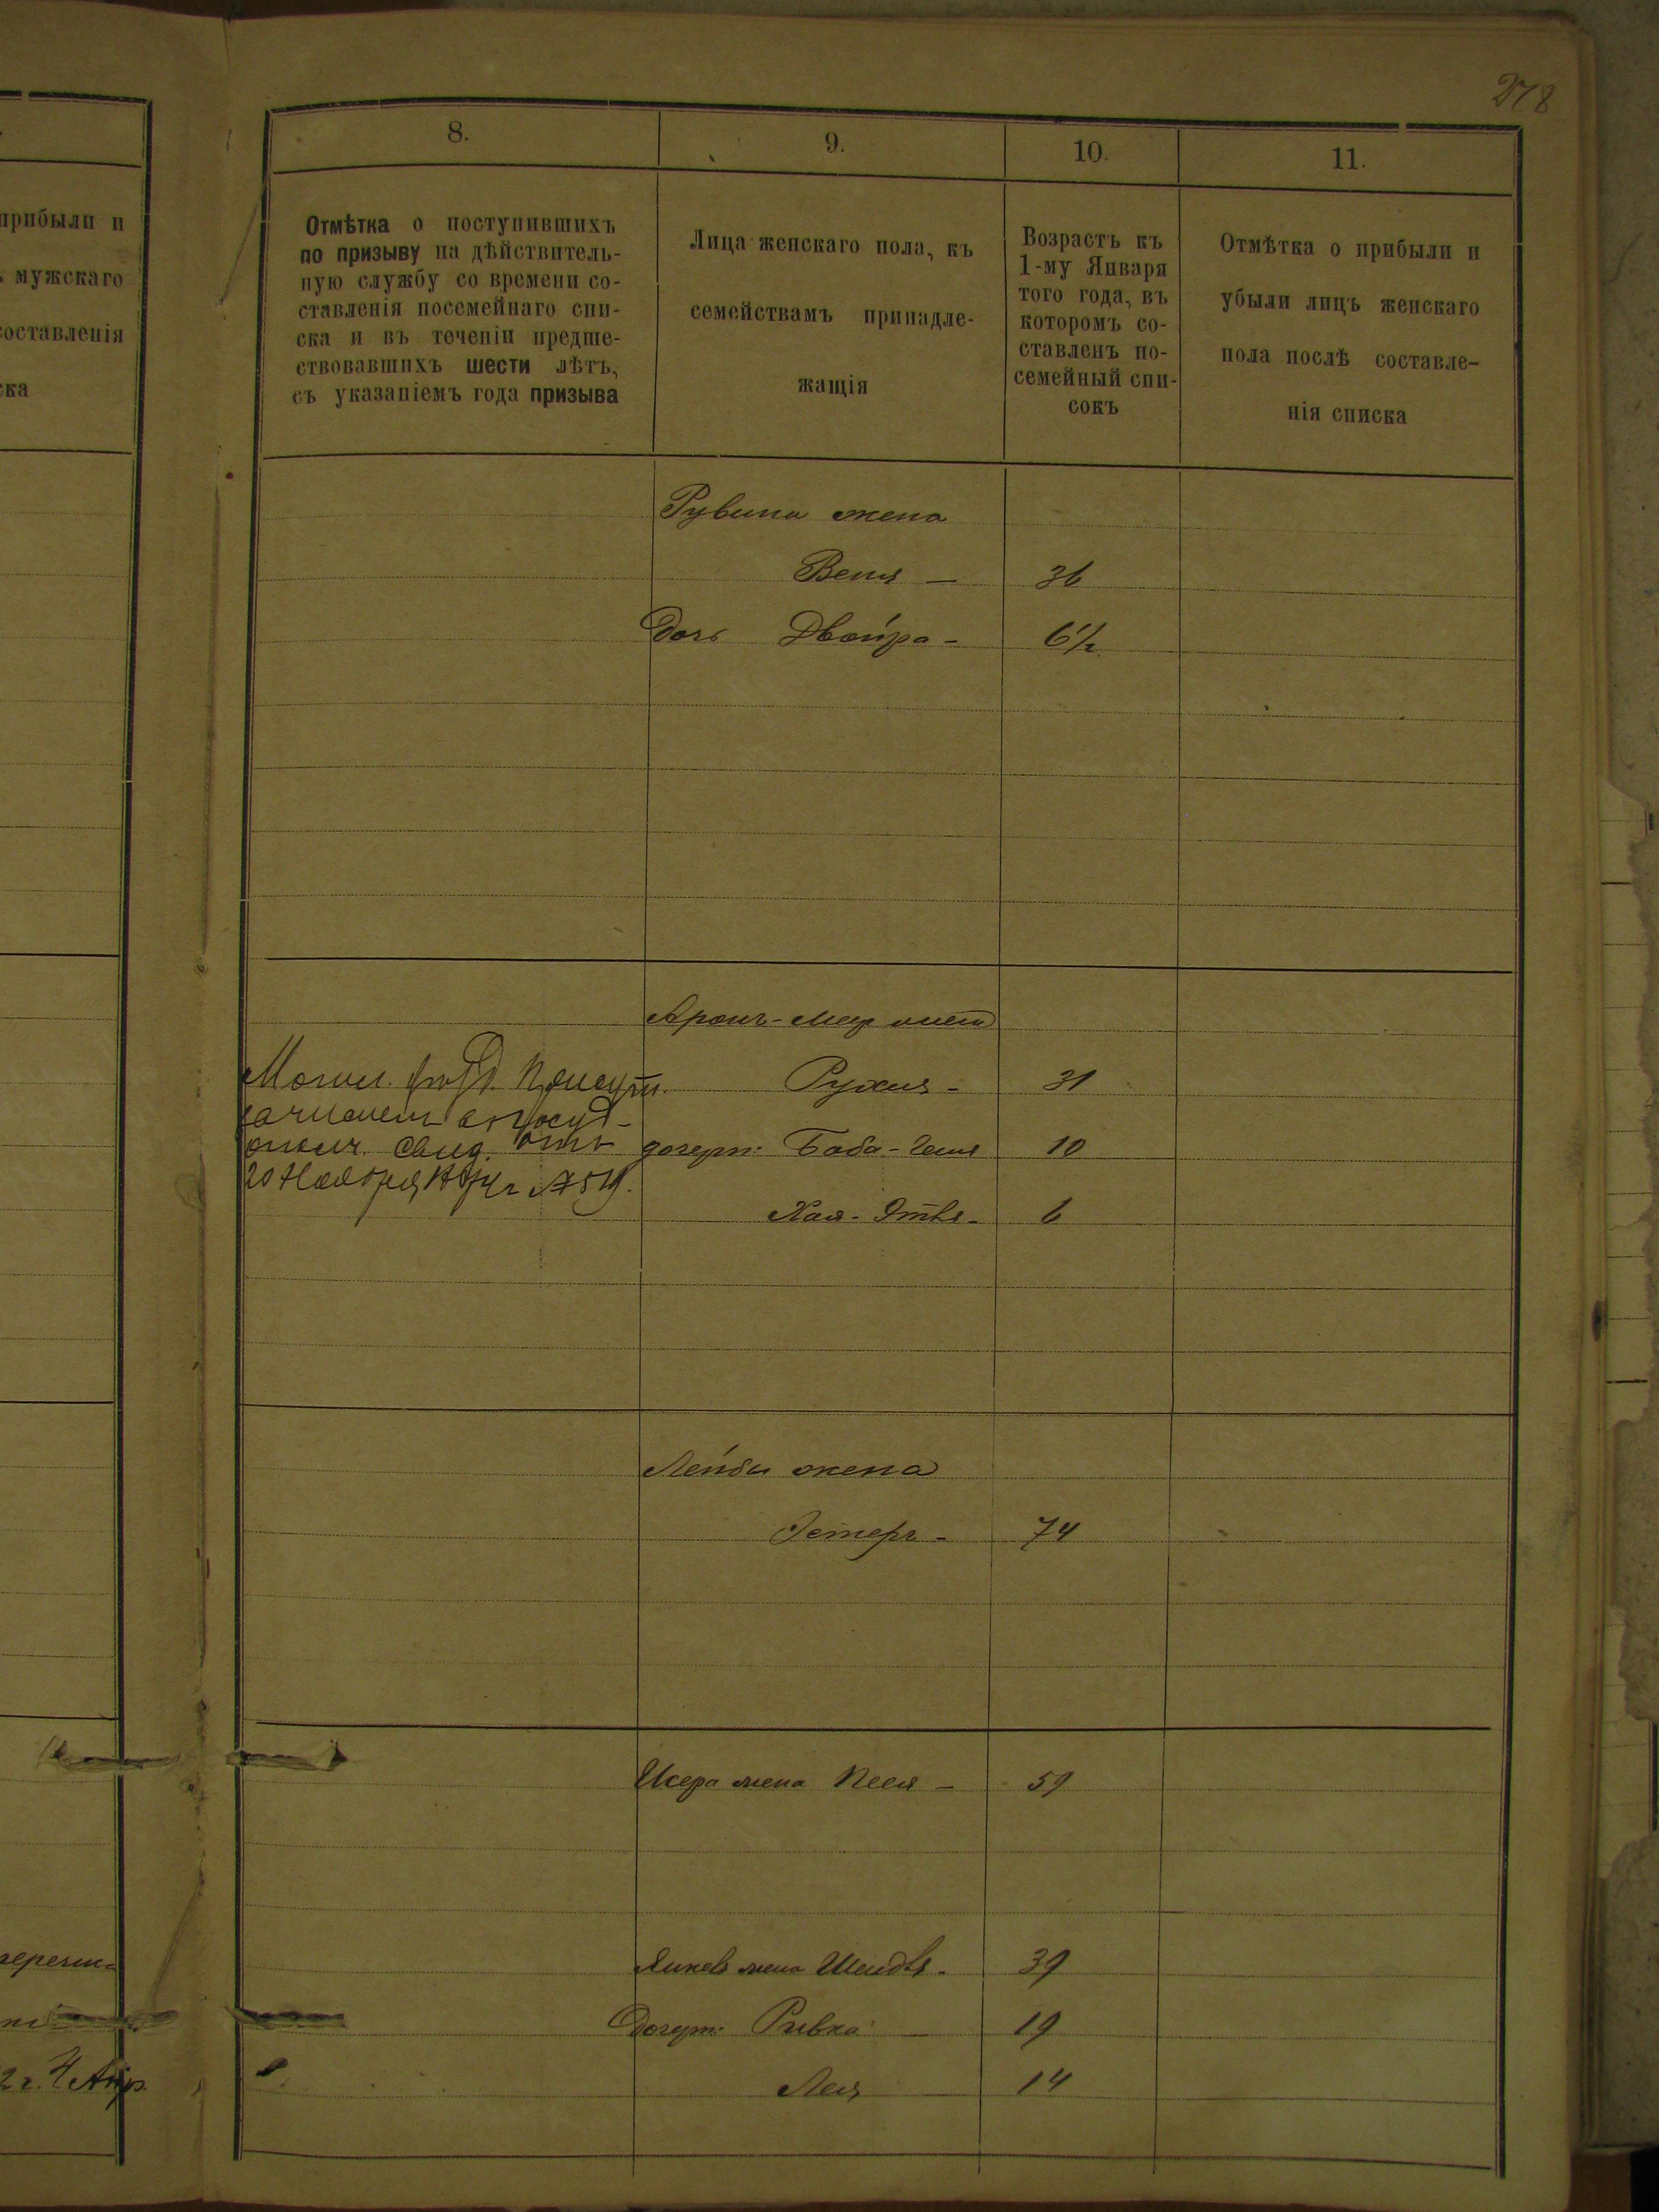 278
прибыли и
мужскаго
составленія
ска
8.
9.
10.
11.
Отмѣтка о поступившихъ
по призыву на дѣйствитель-
ную службу со времени со-
ставленія посемейнаго спи-
ска и въ теченіи предше-
ствовавшихъ шести лѣтъ,
съ указаніемъ года призыва
Лица женскаго пола, къ
семействамъ принадле-
жащія
Возрастъ къ
1-му Января
того года, въ
которомъ со-
ставленъ по-
семейный спи-
сокъ
Отмѣтка о прибыли и
убыли лицъ женскаго
пола послѣ составле-
нія списка
Рувина жена
Веня - 36
Дочь Двейра - 6½
Аронъ-Мер жена
Рухия - 31
дочери: Баба-Геня 10
Хая-Этля - 6
Могил. Присут.
свид. отъ
20 Ноября 1874 г №
Лейбы жена
Эстеръ - 74
Исера жена Песя - 59
Янкеля жена Шендля - 39
Дочери: Ривка 19
Лея 14
2 г. 4 Апр.